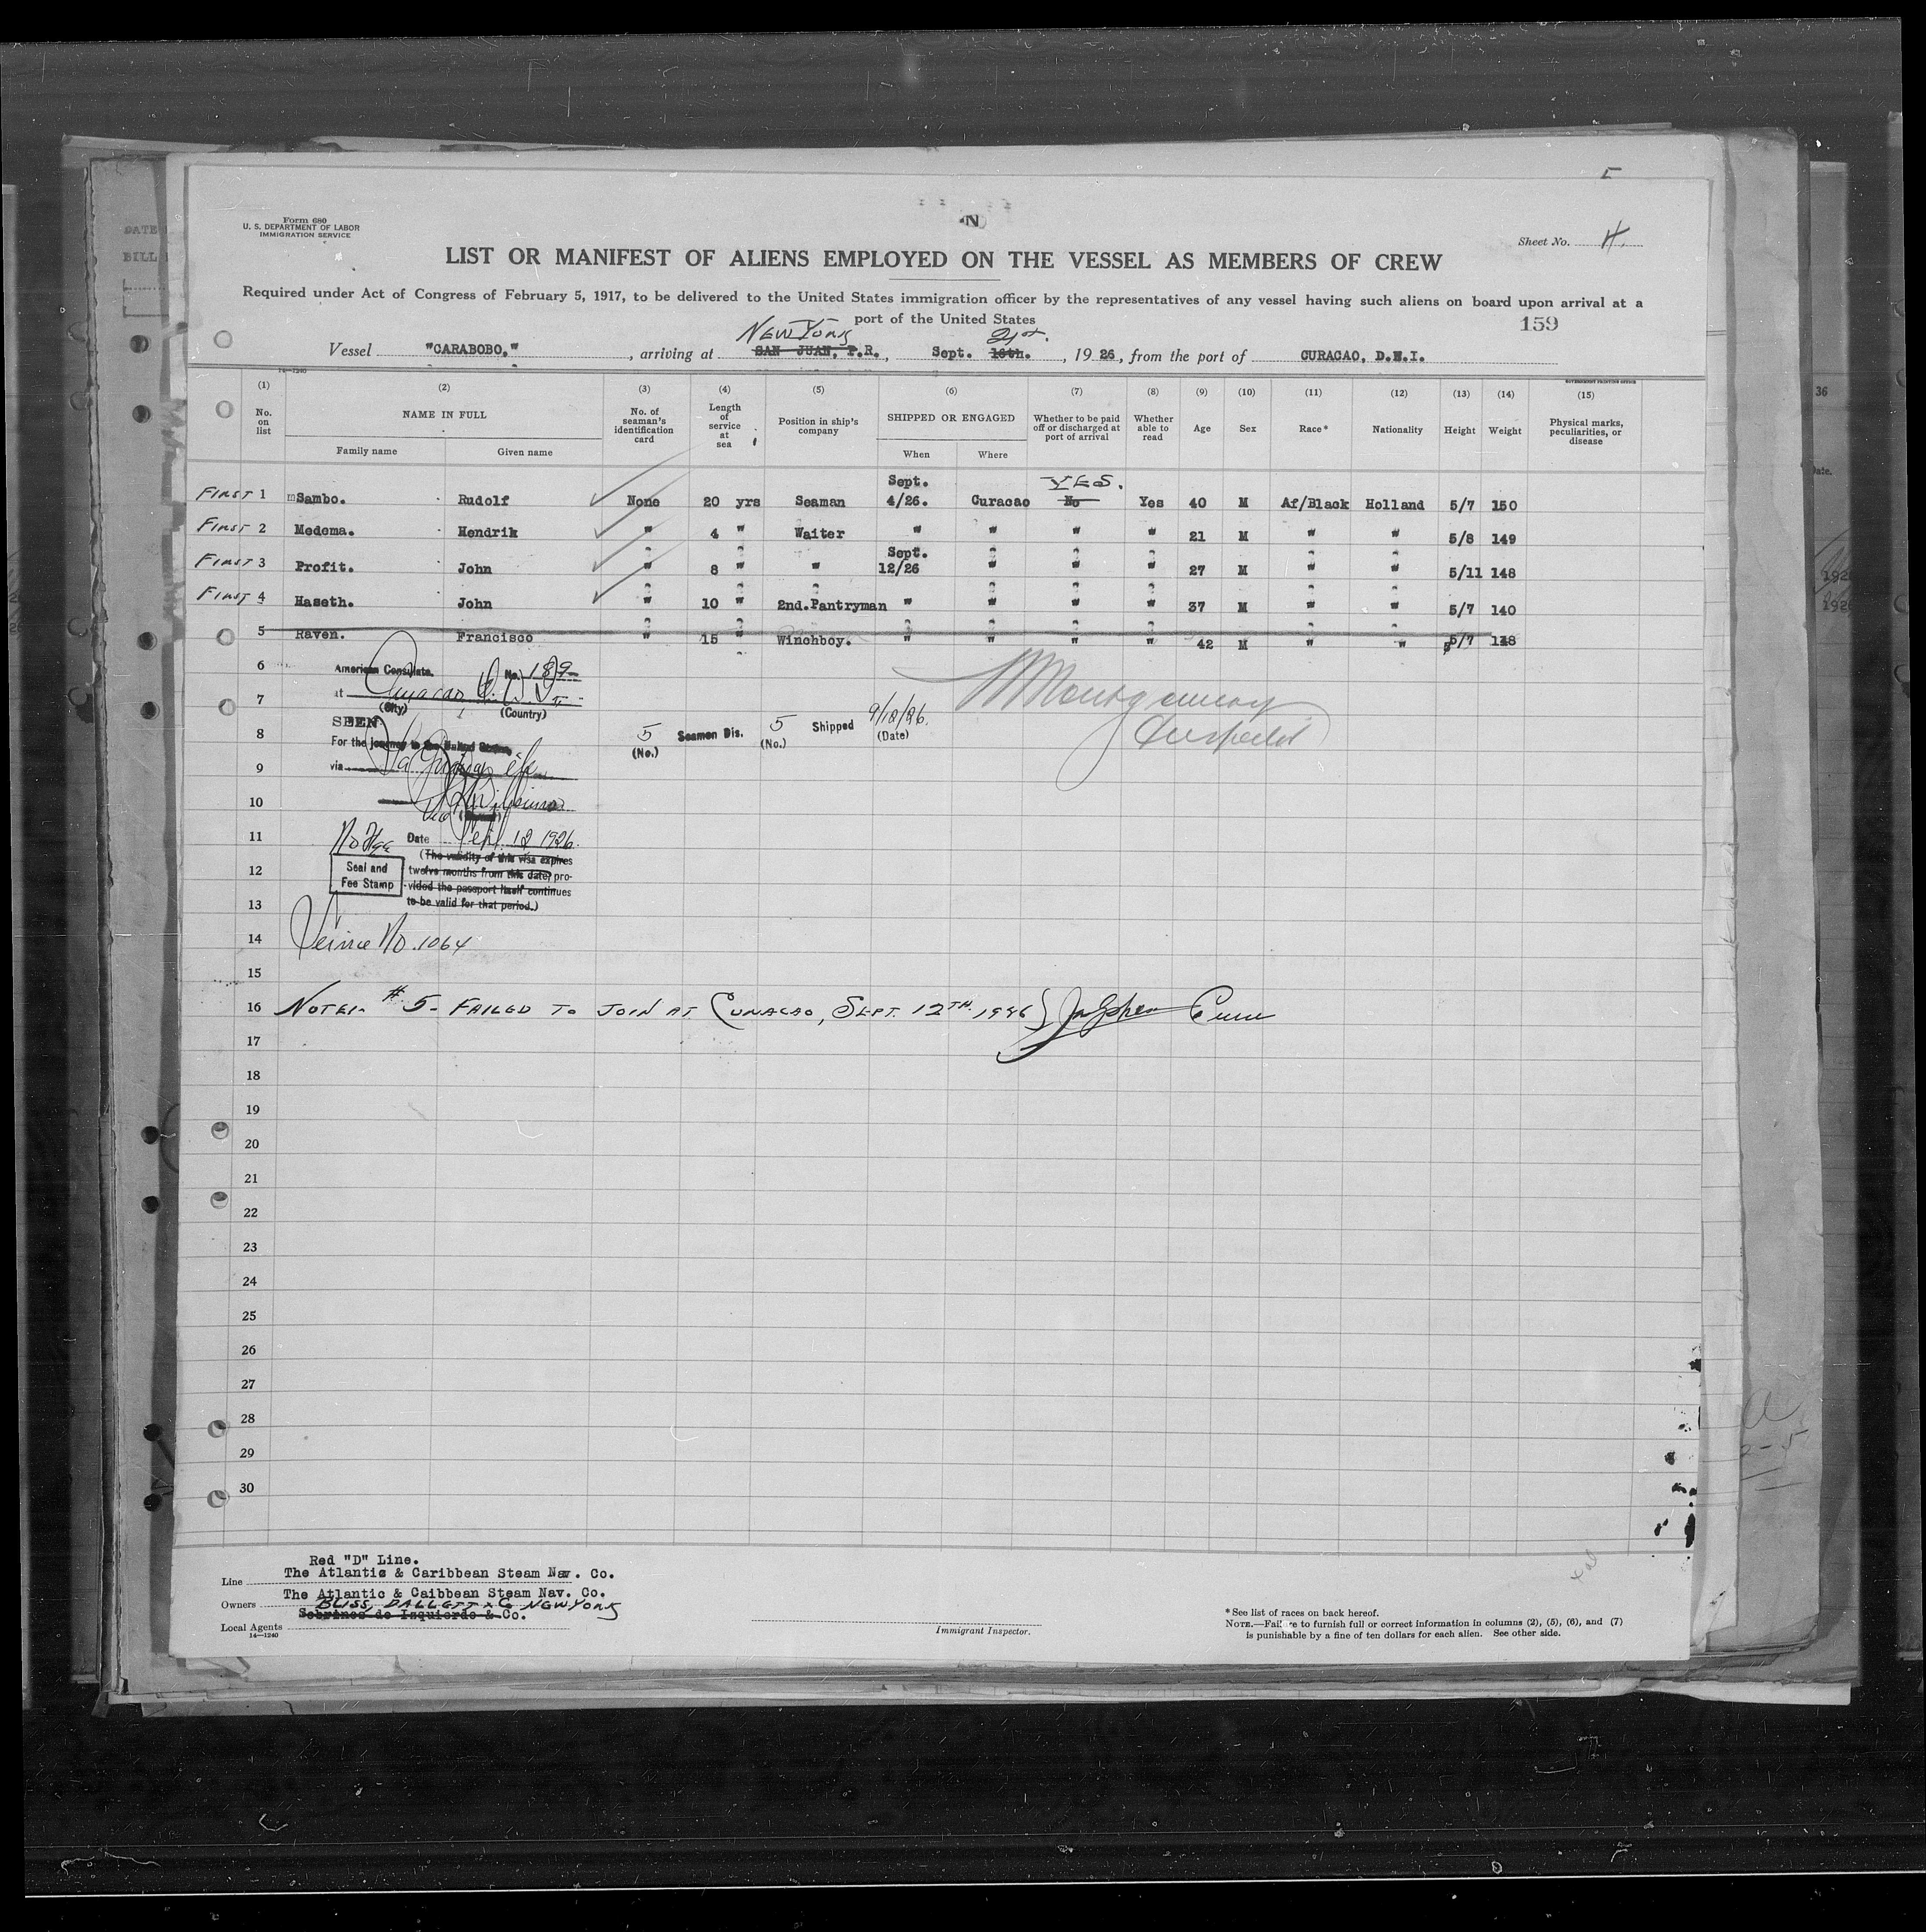 Form 680
U. S. DEPARTMENT OF LABOR
IMMIGRATION SERVICE
N
Sheet No. 4.
LIST OR MANIFEST OF ALIENS EMPLOYED ON THE VESSEL AS MEMBERS OF CREW
Required under Act of Congress of February 5, 1917, to be delivered to the United States immigration officer by the representatives of any vessel having such aliens on board upon arrival at a
port of the United States
159
NEW YORK 21st.
Vessel "CARABOBO." , arriving at SAN JUAN, P.R., Sept. 16th. , 1926, from the port of CURACAO, D.W.I.
14—1240
GOVERNMENT PRINTING OFFICE
(1) (2) (3) (4) (5) (6) (7) (8) (9) (10) (11) (12) (13) (14) (15)
No. on list NAME IN FULL No. of seaman's identification card Length of service at sea Position in ship's company SHIPPED OR ENGAGED Whether to be paid off or discharged at port of arrival Whether able to read Age Sex Race* Nationality Height Weight Physical marks, peculiarities, or disease
Family name Given name When Where
Sept. YES.
FIRST 1 Sambo. Rudolf None 20 yrs Seaman 4/26. Curacao No Yes 40 M Af/Black Holland 5/7 150
FIRST 2 Medema. Hendrik " 4 " Waiter " " " " 21 M " " 5/8 149
Sept.
FIRST 3 Profit. John " 8 " " 12/26 " " " 27 M " " 5/11 148
FIRST 4 Haseth. John " 10 " 2nd.Pantryman " " " " 37 M " " 5/7 140
5 Raven. Francisco " 15 " Winchboy. " " " " 42 M " " 5/7 148
6 American Consulate. No. 189
7 at Curacao
(City) (Country)
SEEN
8 For the journey to the United States, 5 Seamen Dis. 5 Shipped 9/18/26.
(No.) (No.) (Date)
Montgomery
9 via
10
11 No Fee Date Sept. 12 1926.
(The validity of this visa expires
12 Seal and Fee Stamp twelve months from this date, pro-
vided the passport itself continues
13 to be valid for that period.)
14 Service No. 1064
15
16 NOTE:- # 5- FAILED TO JOIN AT CURACAO, SEPT. 12TH. 1926
17
18
19
20
21
22
23
24
25
26
27
28
29
30
Red "D" Line.
Line The Atlantic & Caribbean Steam Nav. Co.
The Atlantic & Caibbean Steam Nav. Co.
Owners BLISS, DALLETT & Co NEW YORK
Sobrinos de Izquierdo & Co.
Local Agents
14—1240
Immigrant Inspector.
* See list of races on back hereof.
NOTE.—Failure to furnish full or correct information in columns (2), (5), (6), and (7)
is punishable by a fine of ten dollars for each alien. See other side.